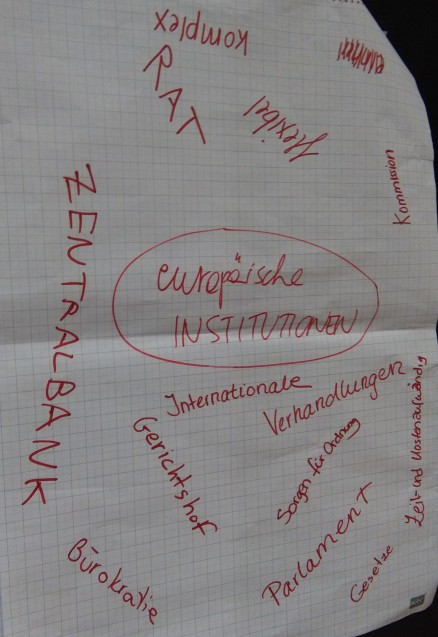 komplex
RAT
flexibel
Kommission
ZENTRALBANK
europäische
INSTITUTIONEN
Internationale
Verhandlungen
Gerichtshof
Sorgen für Ordnung
Zeit- und Kostenaufwändig
Parlament
Gesetze
Bürokratie